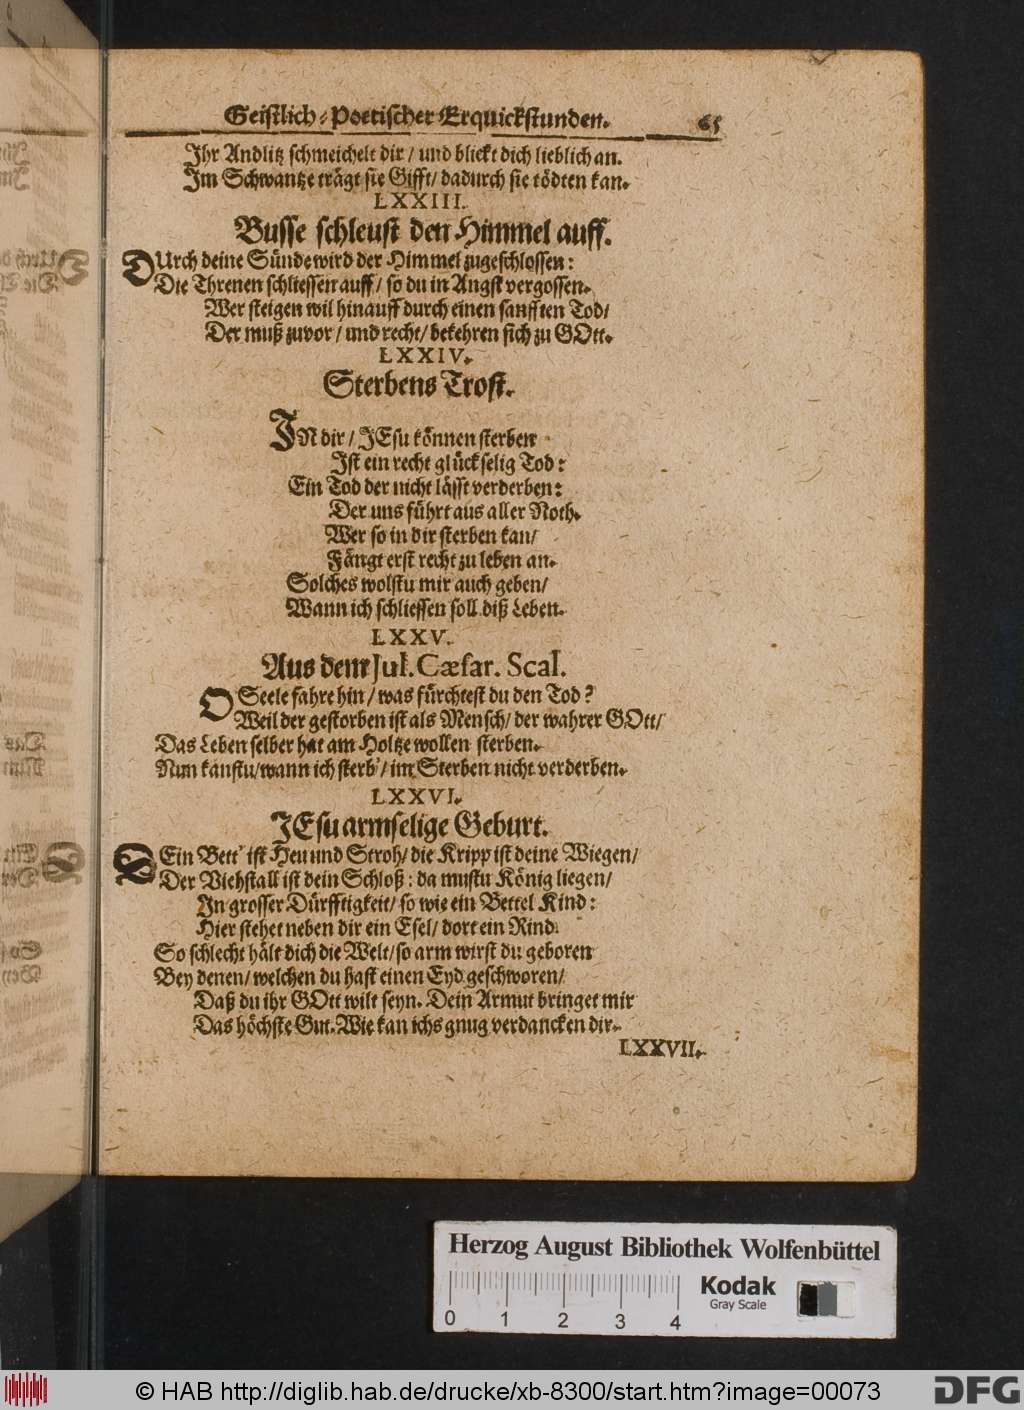 Geistlich-Poetischer Erquickstunden. 65
Ihr Andlitz schmeichelt dir / und blickt dich lieblich an.
Im Schwantze trägt sie Gifft / dadurch sie tödten kan.
LXXIII.
Busse schleust den Himmel auff.
DUrch deine Sünde wird der Himmel zugeschlossen:
Die Threnen schliessen auff / so du in Angst vergossen.
Wer steigen wil hinauff durch einen sanfften Tod /
Der muß zuvor / und recht / bekehren sich zu GOtt.
LXXIV.
Sterbens Trost.
IN dir / JEsu können sterben
Ist ein recht glückselig Tod:
Ein Tod der nicht lässt verderben:
Der uns führt aus aller Noth.
Wer so in dir sterben kan /
Fängt erst recht zu leben an.
Solches wolstu mir auch geben /
Wann ich schliessen soll diß Leben.
LXXV.
Aus dem Jul. Cæsar. Scal.
O Seele fahre hin / was fürchtest du den Tod?
Weil der gestorben ist als Mensch / der wahrer GOtt /
Das Leben selber hat am Holtze wollen sterben.
Nun kanstu / wann ich sterb' / im Sterben nicht verderben.
LXXVI.
JEsu armselige Geburt.
SEin Bett' ist Heu und Stroh / die Kripp ist deine Wiegen /
Der Viehstall ist dein Schloß: da mustu König liegen /
In grosser Dürfftigkeit / so wie ein Bettel Kind:
Hier stehet neben dir ein Esel / dort ein Rind.
So schlecht hält dich die Welt / so arm wirst du geboren
Bey denen / welchen du hast einen Eyd geschworen /
Daß du ihr GOtt wilt seyn. Dein Armut bringet mir
Das höchste Gut. Wie kan ichs gnug verdancken dir.
LXXVII.
Herzog August Bibliothek Wolfenbüttel
Kodak
Gray Scale
0 1 2 3 4
© HAB http://diglib.hab.de/drucke/xb-8300/start.htm?image=00073
DFG